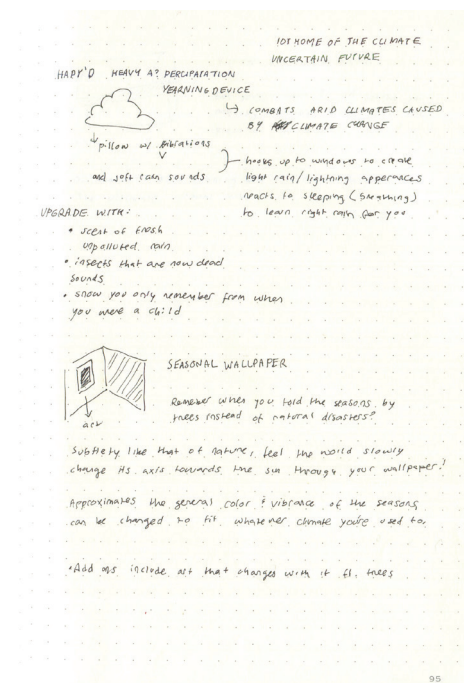 IOT HOME OF THE CLIMATE
UNCERTAIN FUTURE
HAPY'D HEAVY A? PERCIPATATION
YEARNING DEVICE
↳ COMBATS ARID CLIMATES CAUSED
BY CLIMATE CHANGE
pillow w/ vibrations
and soft rain sounds
hooks up to windows to create
light rain/lightning apperances
reacts to sleeping (breathing)
to learn right rain for you
UPGRADE WITH:
• scent of fresh
unpolluted rain
• insects that are now dead
sounds
• snow you only remember from when
you were a child
SEASONAL WALLPAPER
art
Remeber when you told the seasons by
trees instead of natural disasters?
Subtlety like that of nature, feel the world slowly
change its axis towards the sun through your wallpaper!
Approximates the general color & vibrance of the seasons
can be changed to fit whatever climate you're used to.
•Add ons include art that changes with it ft. trees
95